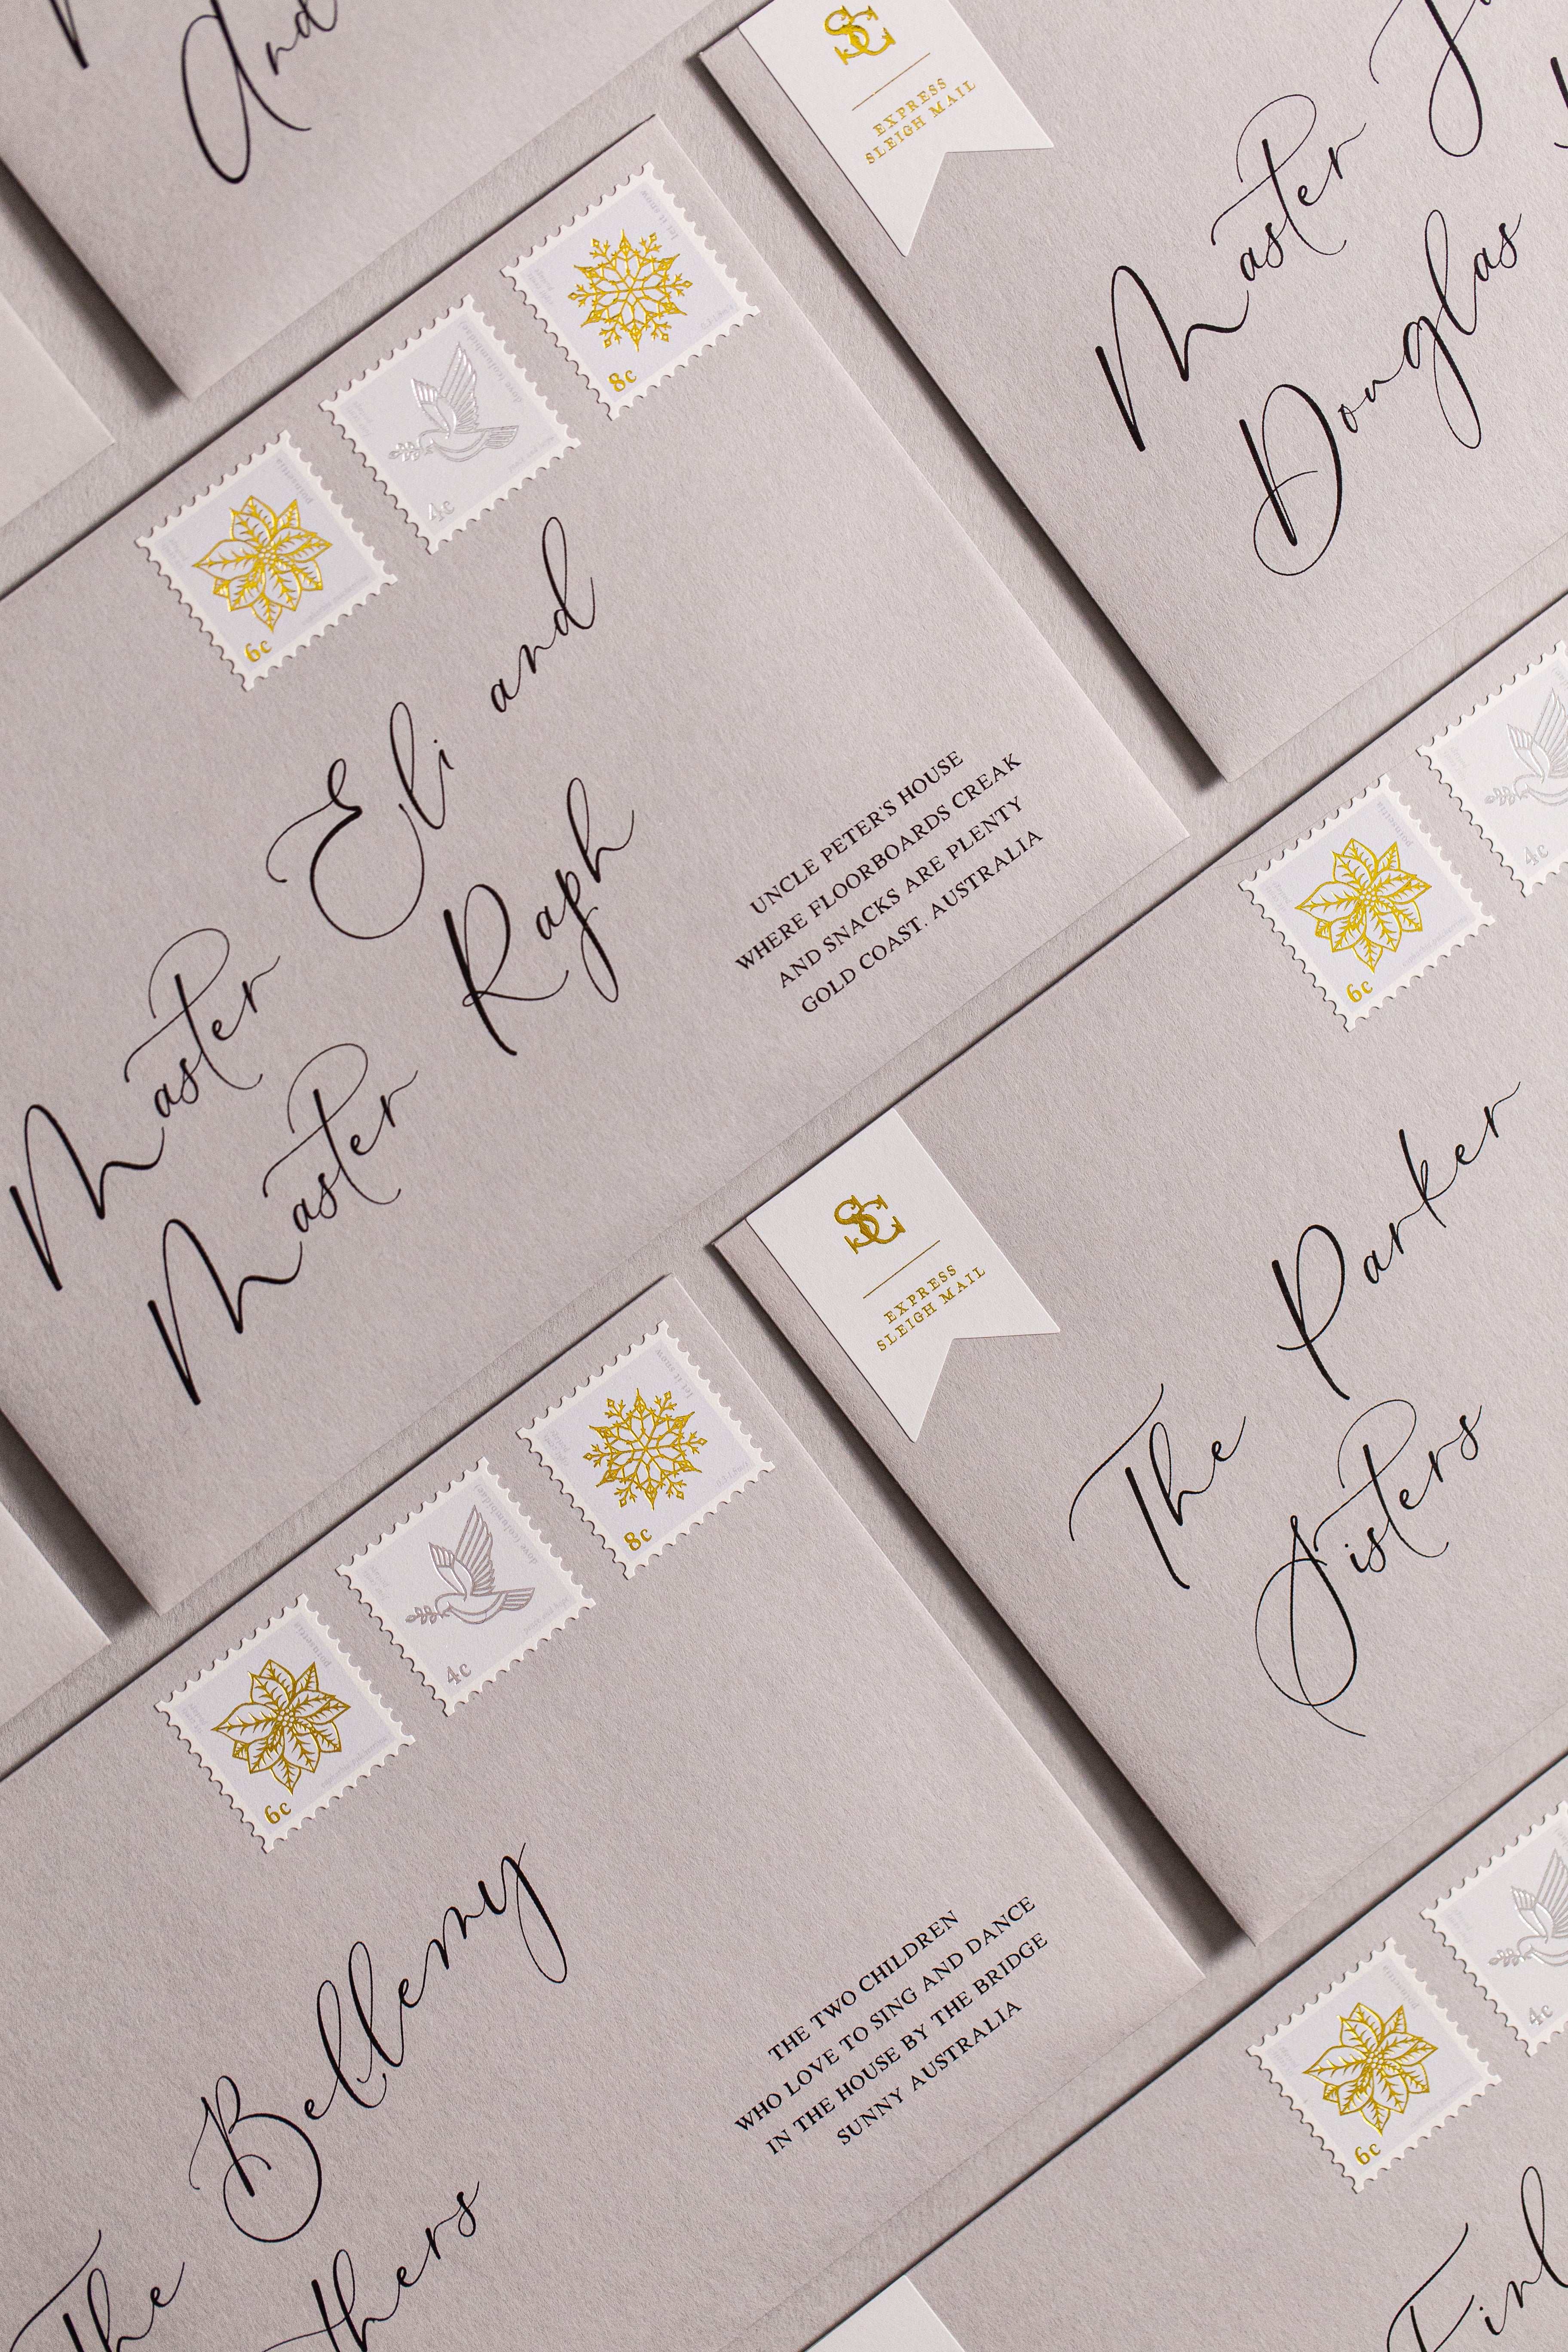 And
SC
EXPRESS
SLEIGH MAIL
Master
Douglas
let it snow
8c
4c
poinsettia
6c
Master Eli and
Master Raph
UNCLE PETER'S HOUSE
WHERE FLOORBOARDS CREAK
AND SNACKS ARE PLENTY
GOLD COAST. AUSTRALIA
4c
poinsettia
6c
SC
EXPRESS
SLEIGH MAIL
The Parker
Sisters
let it snow
8c
4c
poinsettia
6c
The Bellemy
THE TWO CHILDREN
WHO LOVE TO SING AND DANCE
IN THE HOUSE BY THE BRIDGE
SUNNY AUSTRALIA
4c
6c